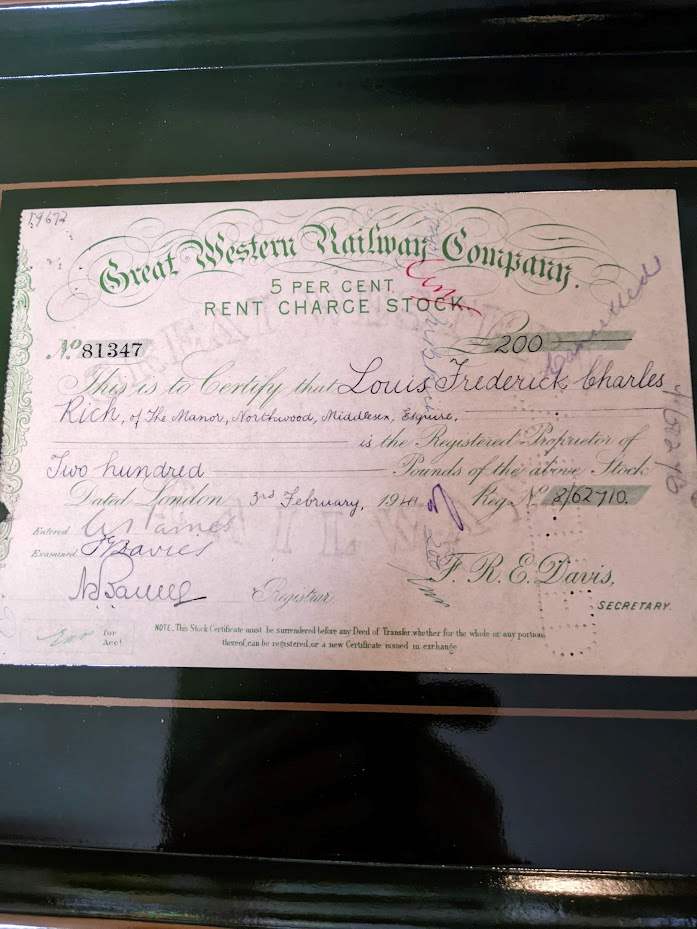 59672
Great Western Railway Company.
5 PER CENT.
RENT CHARGE STOCK.
No. 81347 200
Cancelled
This is to Certify that Louis Frederick Charles
Rich, of The Manor, Northwood, Middlesex, Esquire,
is the Registered Proprietor of
Two hundred Pounds of the above Stock
Dated London 3rd February, 19 Reg. No. 8/62710.
Entered
Examined F Davies
F. R. E. Davis,
Registrar
SECRETARY.
for
Acct
NOTE. This Stock Certificate must be surrendered before any Deed of Transfer, whether for the whole or any portion
thereof, can be registered, or a new Certificate issued in exchange